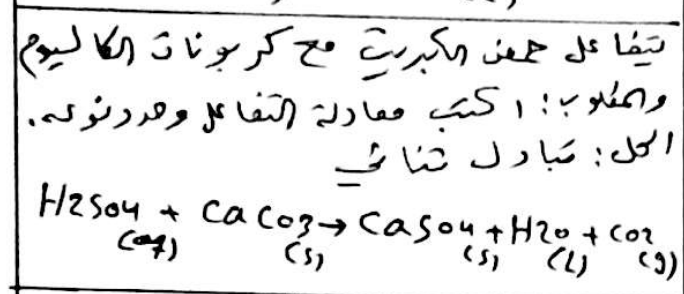 يتفاعل حمض الكبريت مع كربونات الكالسيوم
والمطلوب: اكتب معادلة التفاعل وحدد نوعه.
الحل: تبادل ثنائي
H2SO4 + CaCO3 → CaSO4 + H2O + CO2
(aq) (s) (s) (L) (g)